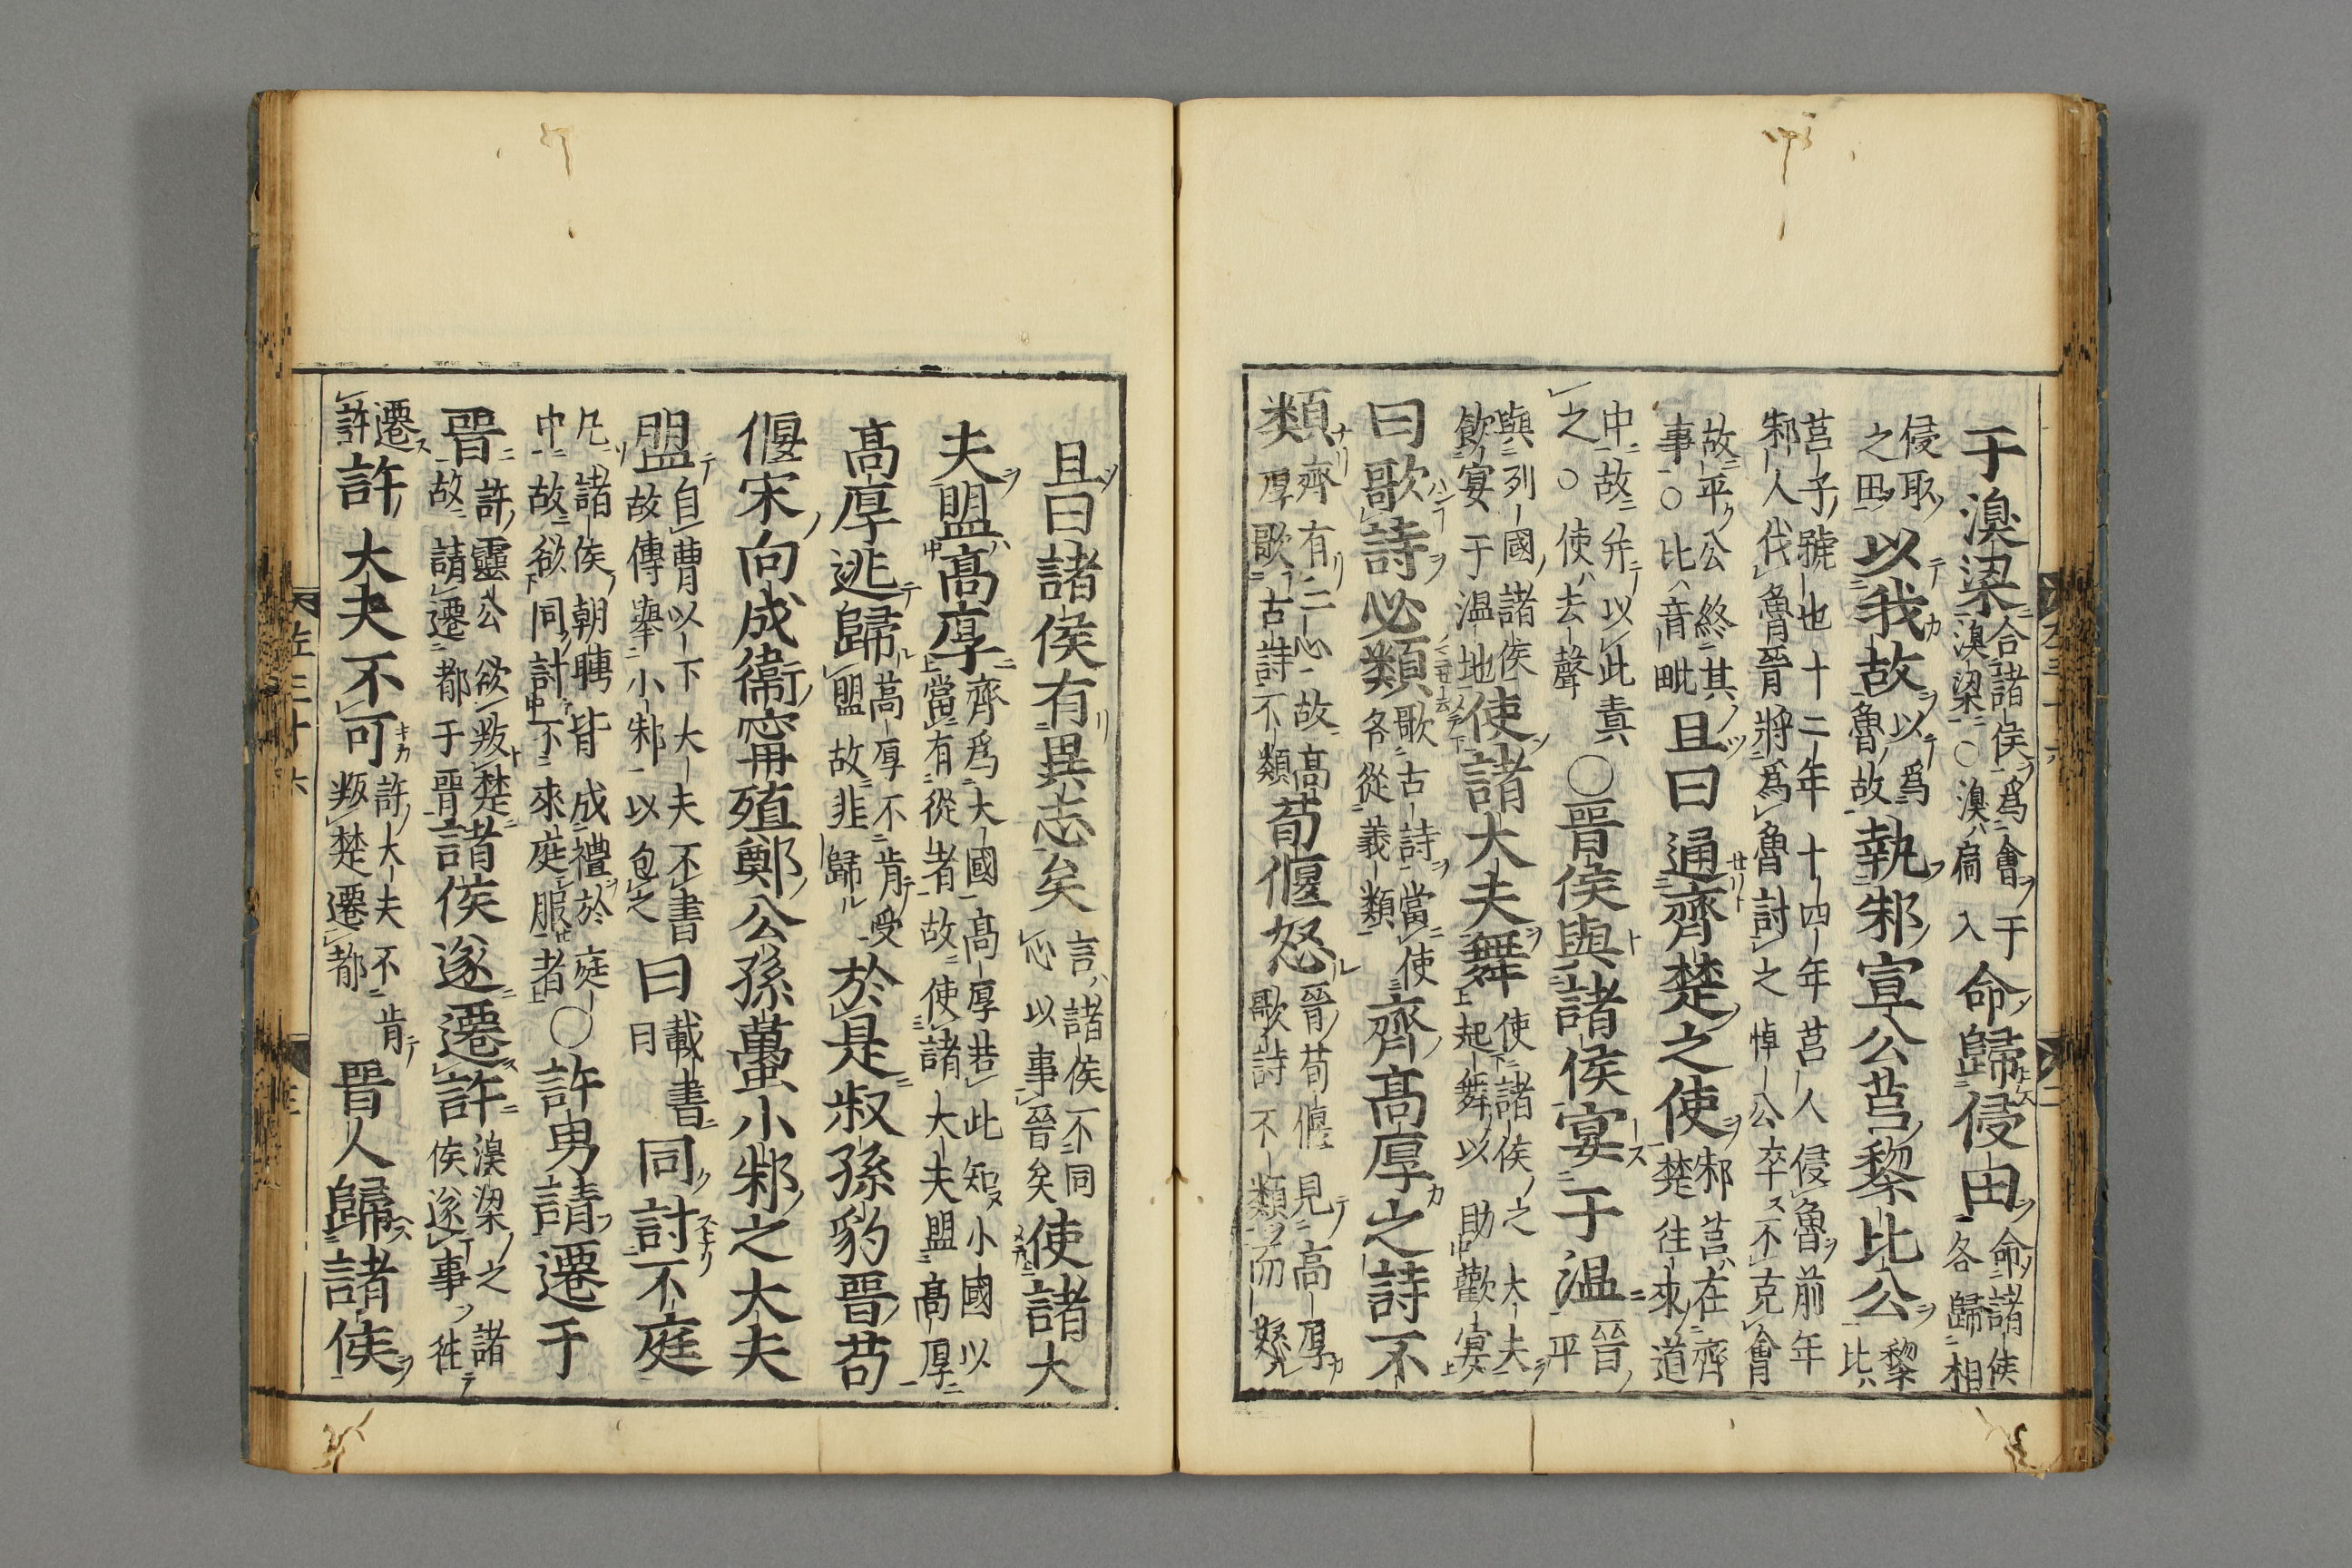 于溴梁合諸侯爲會于溴梁○溴扃入命歸侵田命諸侯各歸相
侵取之田以我故以爲魯故執邾宣公莒犂比公黎比
莒子號也十二年十四年莒人侵魯前年邾人伐魯晉將爲魯討之悼公卒不克會
故平公終其事○比音毗且曰通齊楚之使邾莒在齊楚往來道
中故幷以此責之○使去聲○晉侯與諸侯宴于温晉平
與列國諸侯飮宴于温地使諸大夫舞使諸侯之大夫起舞以助歡宴
曰歌詩必類歌古詩當使各從義類齊高厚之詩不
類齊有二心故高厚歌古詩不類荀偃怒晉荀偃見高厚歌詩不類而怒
且曰諸侯有異志矣言諸侯不同心以事晉矣使諸大
夫盟高厚齊爲大國高厚若此知小國以當有從者故使諸大夫盟高厚
高厚逃歸高厚不肯受盟故逃歸於是叔孫豹晉荀
偃宋向戌衞甯殖鄭公孫蠆小邾之大夫
盟自曹以下大夫不書故傳舉小邾以包之曰載書曰同討不庭
凡諸侯朝聘皆成禮於庭中故欲同討不來庭服者○許男請遷于
晉許靈公欲叛楚故請遷都于晉諸侯遂遷許溴梁之諸侯遂事往
遷許許大夫不可許大夫不肯叛楚遷都晉人歸諸侯